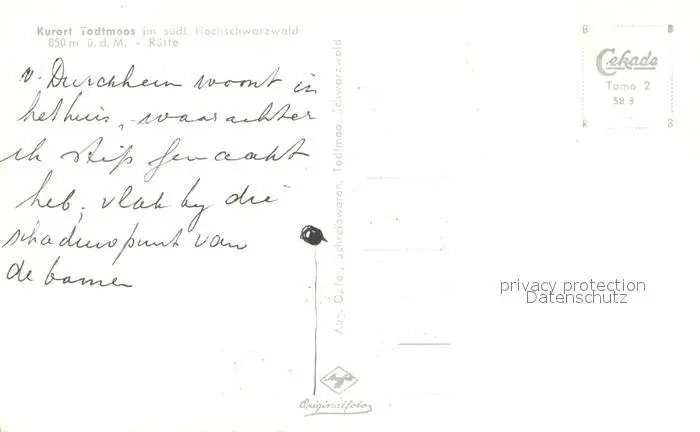 Kurort Todtmoos im südl. Hochschwarzwald
850 m ü. d. M. - Rütte
v. Durckheim woont in
het huis, waarachter
ik stip gemaakt
heb, vlak by die
schaduwpunt van
de bomen
Aug. Schreibwaren, Todtmoos Schwarzwald
Agfa
Originalfoto
Cekade
Tomo 2
58 3
privacy protection
Datenschutz